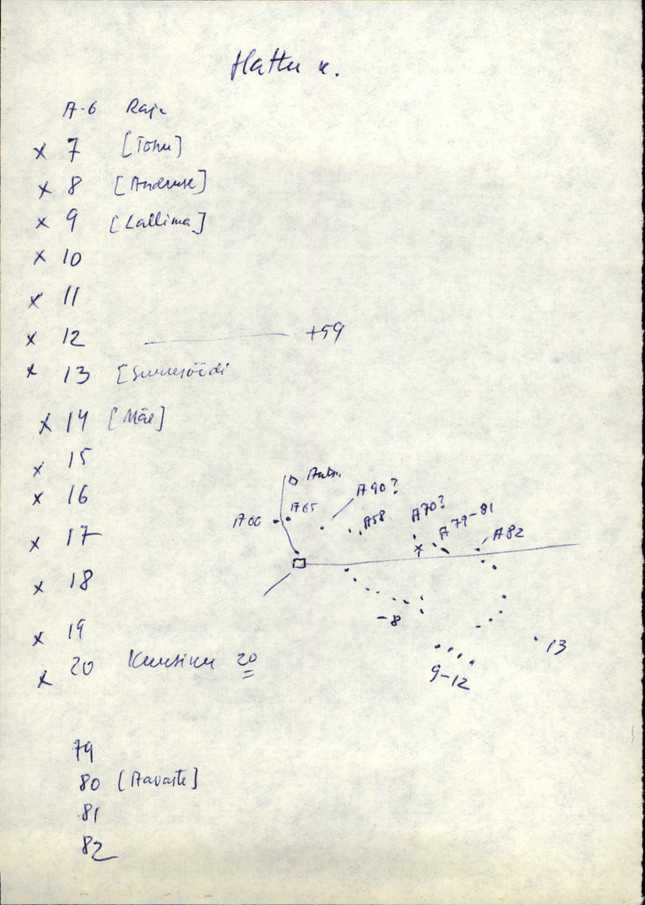 Hattu k.
A-6 Raja
x 7 [Tōnu]
x 8 [Andruse]
x 9 [Lallima]
x 10
x 11
x 12 +59
x 13
x 14 [Mäe]
x 15
x 16
x 17
x 18
x 19
x 20 Kuusiku 20
79
80 [Aavaste]
81
82
A90?
A66 A65
A58
A70?
A79-81
A82
-8
9-12
13